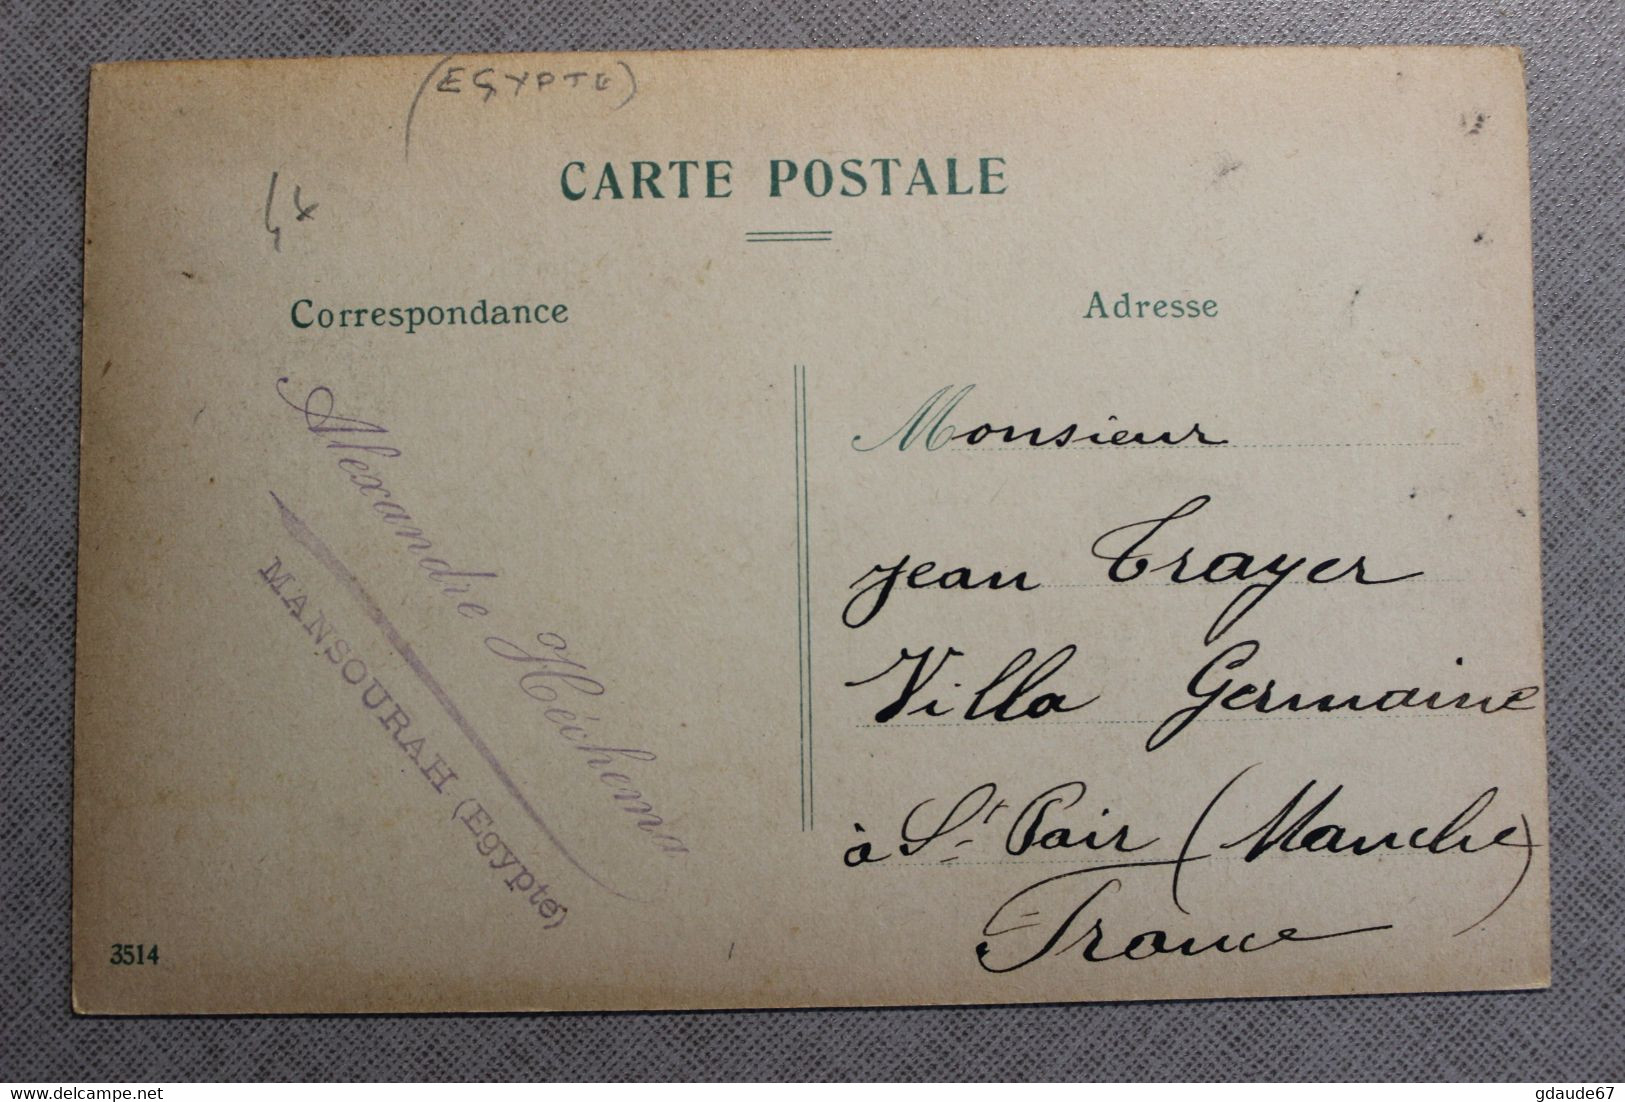 (EGYPTE)
CARTE POSTALE
Correspondance
Adresse
Alexandre Héchema
MANSOURAH (Egypte)
3514
Monsieur
Jean Trayer
Villa Germaine
à St Pair (Manche)
France
delcampe.net
gdaude67